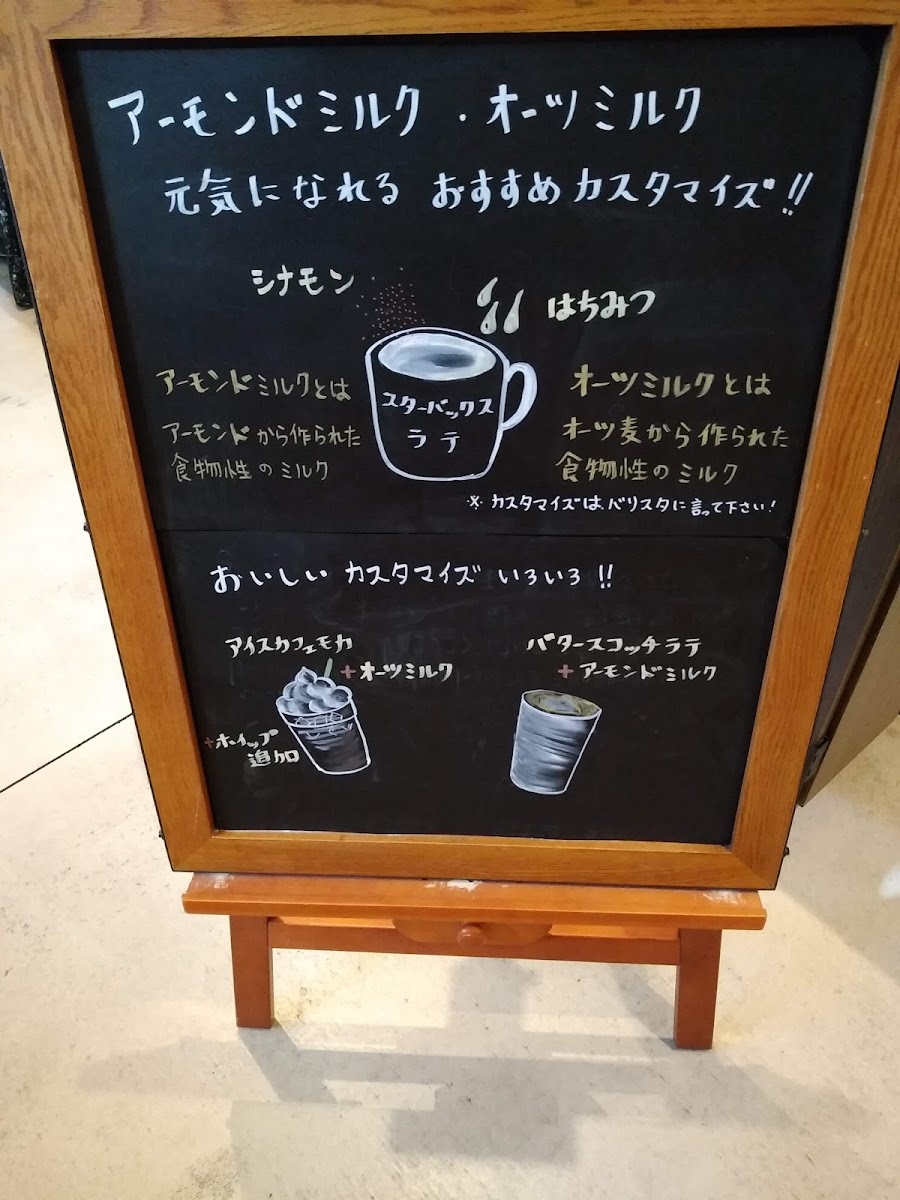 アーモンドミルク・オーツミルク
元気になれる おすすめカスタマイズ!!
シナモン
はちみつ
スターバックス
ラテ
アーモンドミルクとは
アーモンドから作られた
食物性のミルク
オーツミルクとは
オーツ麦から作られた
食物性のミルク
※カスタマイズは、バリスタに言って下さい!
おいしい カスタマイズ いろいろ!!
アイスカフェモカ
+オーツミルク
+ホイップ
追加
バタースコッチラテ
+アーモンドミルク